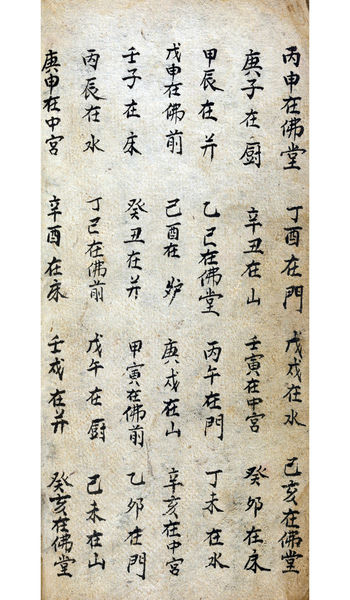 丙申在佛堂 丁酉在門 戊戌在水 己亥在佛堂
庚子在厨 辛丑在山 壬寅在中宮 癸卯在床
甲辰在井 乙巳在佛堂 丙午在門 丁未在水
戊申在佛前 己酉在炉 庚戌在山 辛亥在中宮
壬子在床 癸丑在井 甲寅在佛前 乙卯在門
丙辰在水 丁巳在佛前 戊午在厨 己未在山
庚申在中宮 辛酉在床 壬戌在井 癸亥在佛堂